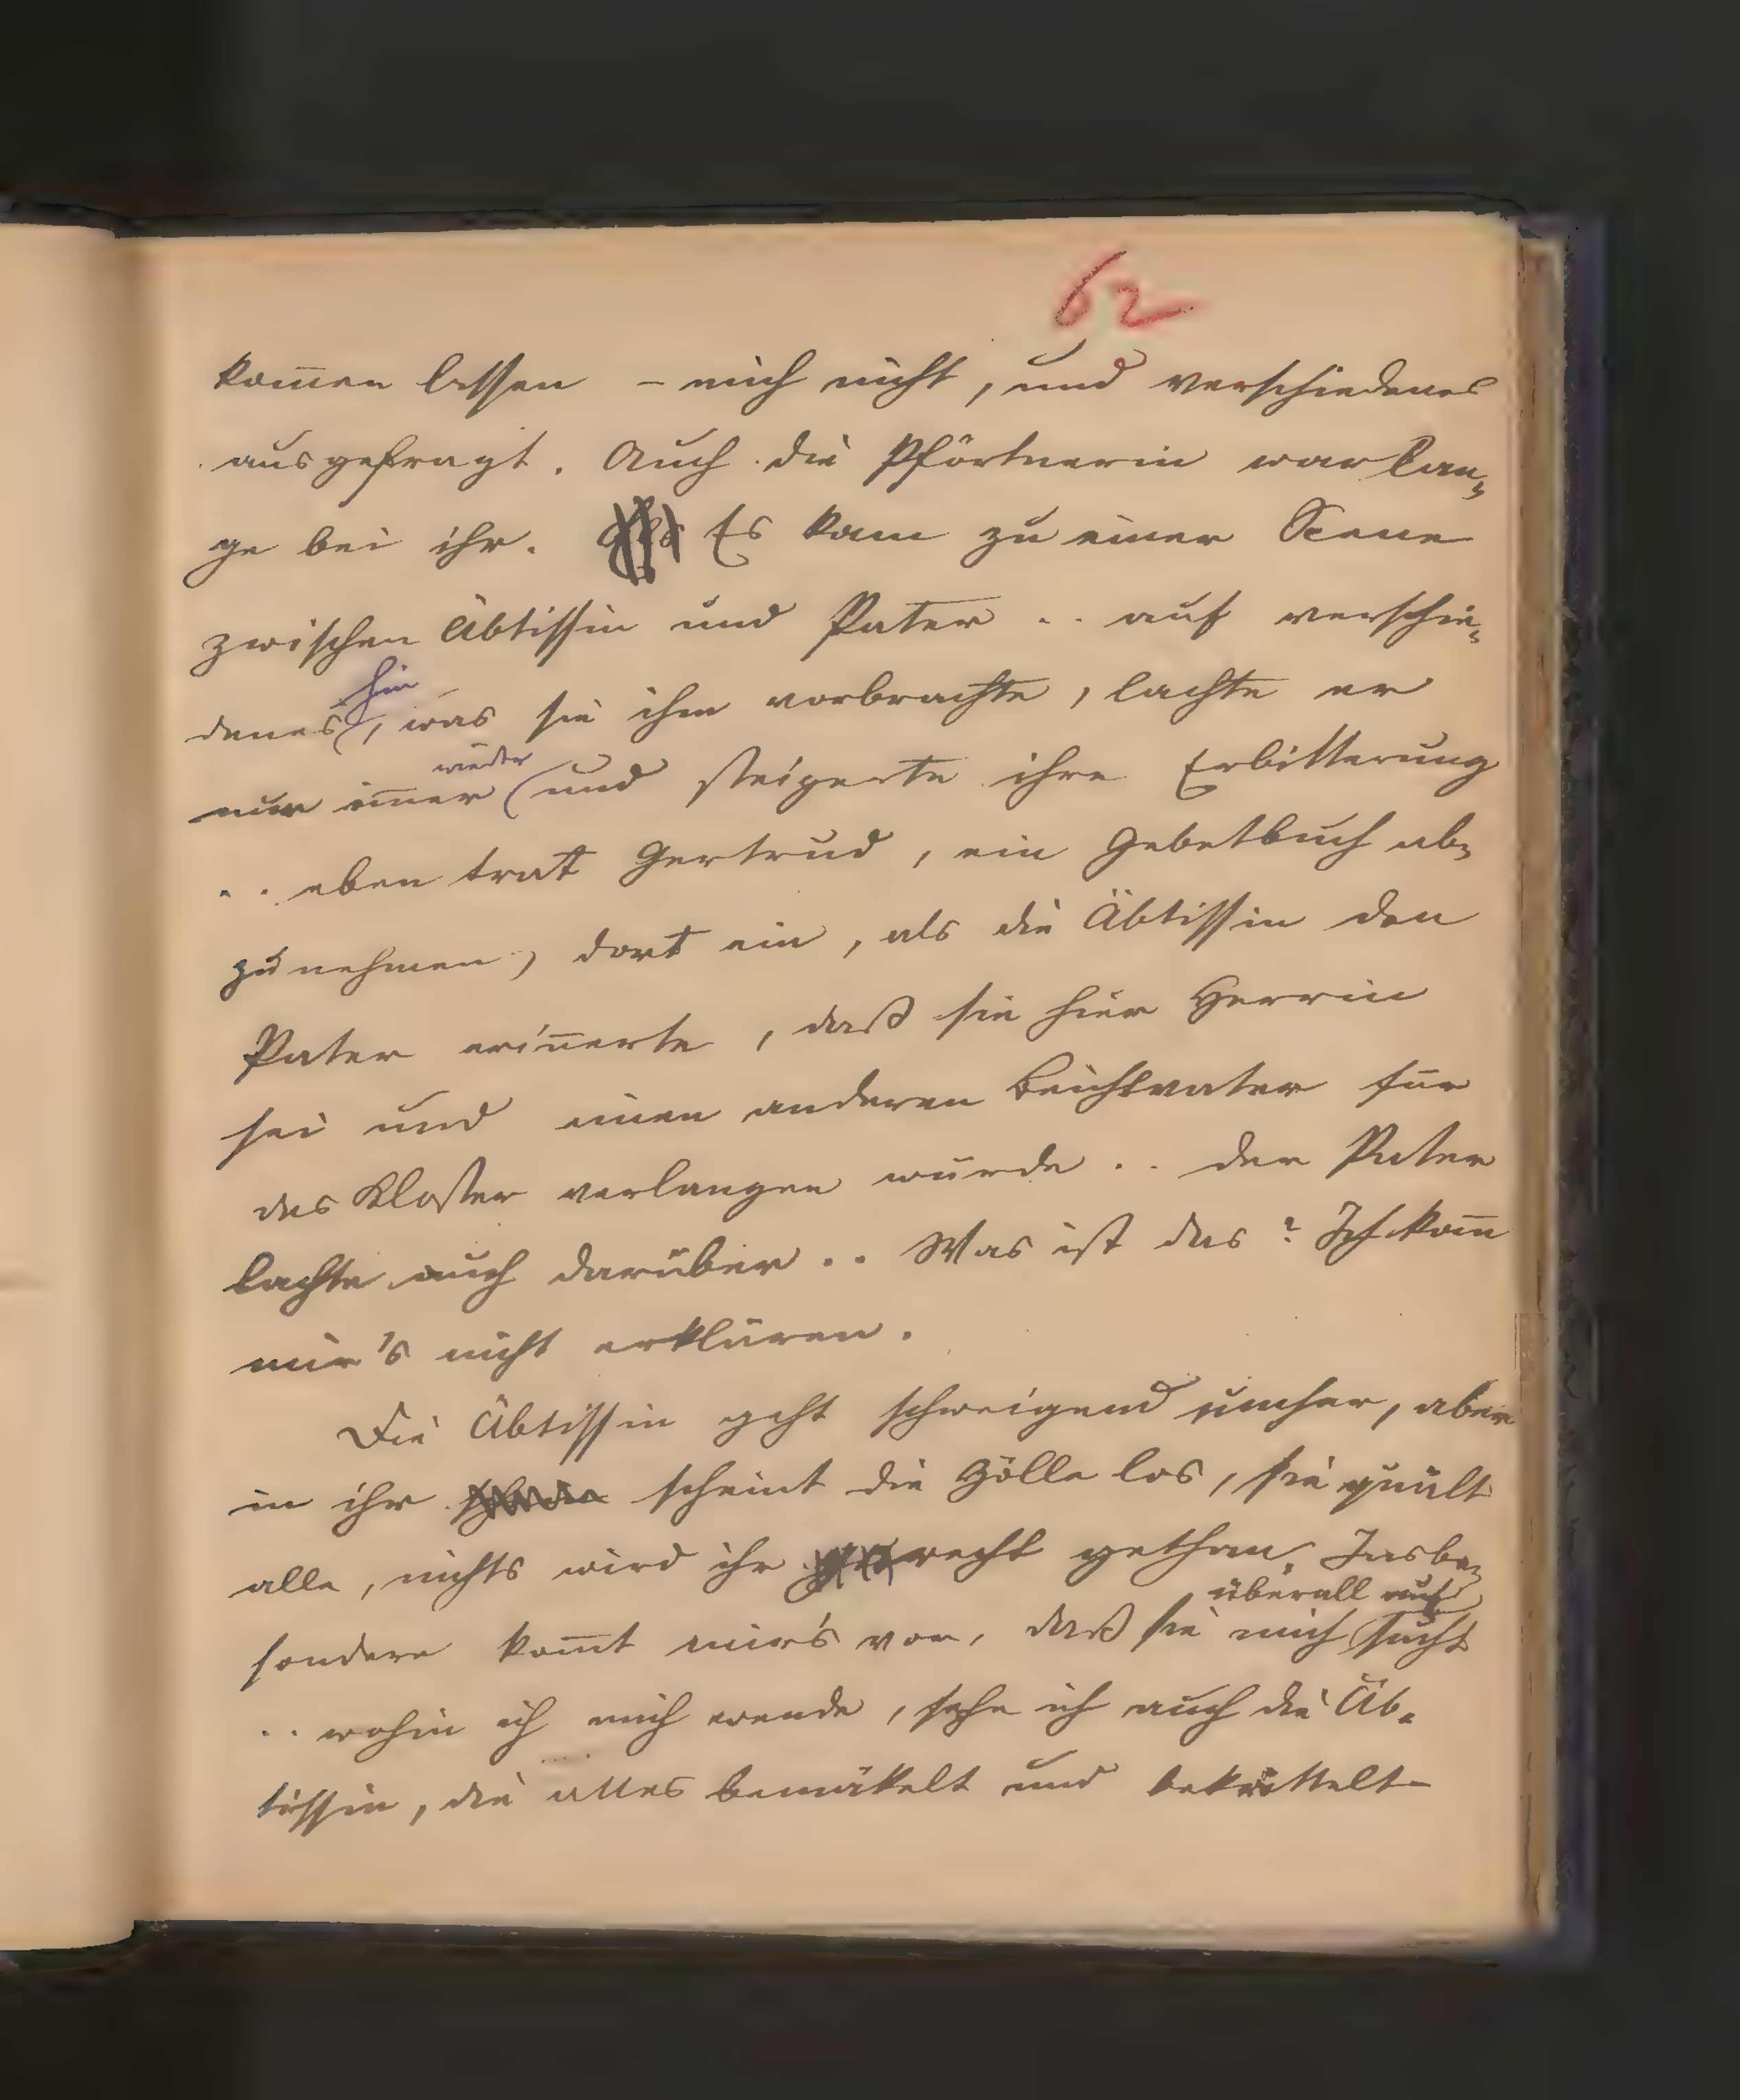 62
kom̄en lassen – mich nicht, und verschiedenes
ausgefragt. Auch die Pförtnerin war lan=
ge bei ihr. Es kam zu einer Scene
zwischen Äbtissin und Pater .. auf verschie=
hin
denes, was sie ihm vorbrachte, lachte er
wieder
nur im̄er und steigerte ihre Erbitterung
.. eben trat Gertrud, ein Gebetbuch ab=
zunehmen, dort ein, als die Äbtissin den
Pater erin̄erte, daß sie hier Herrin
sei und einen anderen Beichtvater für
das Kloster verlangen würde .. der Pater
lachte auch darüber .. Was ist das? Ich kan̄
mir's nicht erklären.
Die Äbtissin geht schweigend umher, aber
in ihr scheint die Hölle los, sie quält
alle, nichts wird ihr recht gethan. Insbe=
überall auf
sondere kom̄t mir's vor, daß sie mich sucht
.. wohin ich mich wende, sehe ich auch die Äb=
tissin, die alles bemäkelt und bekrittelt